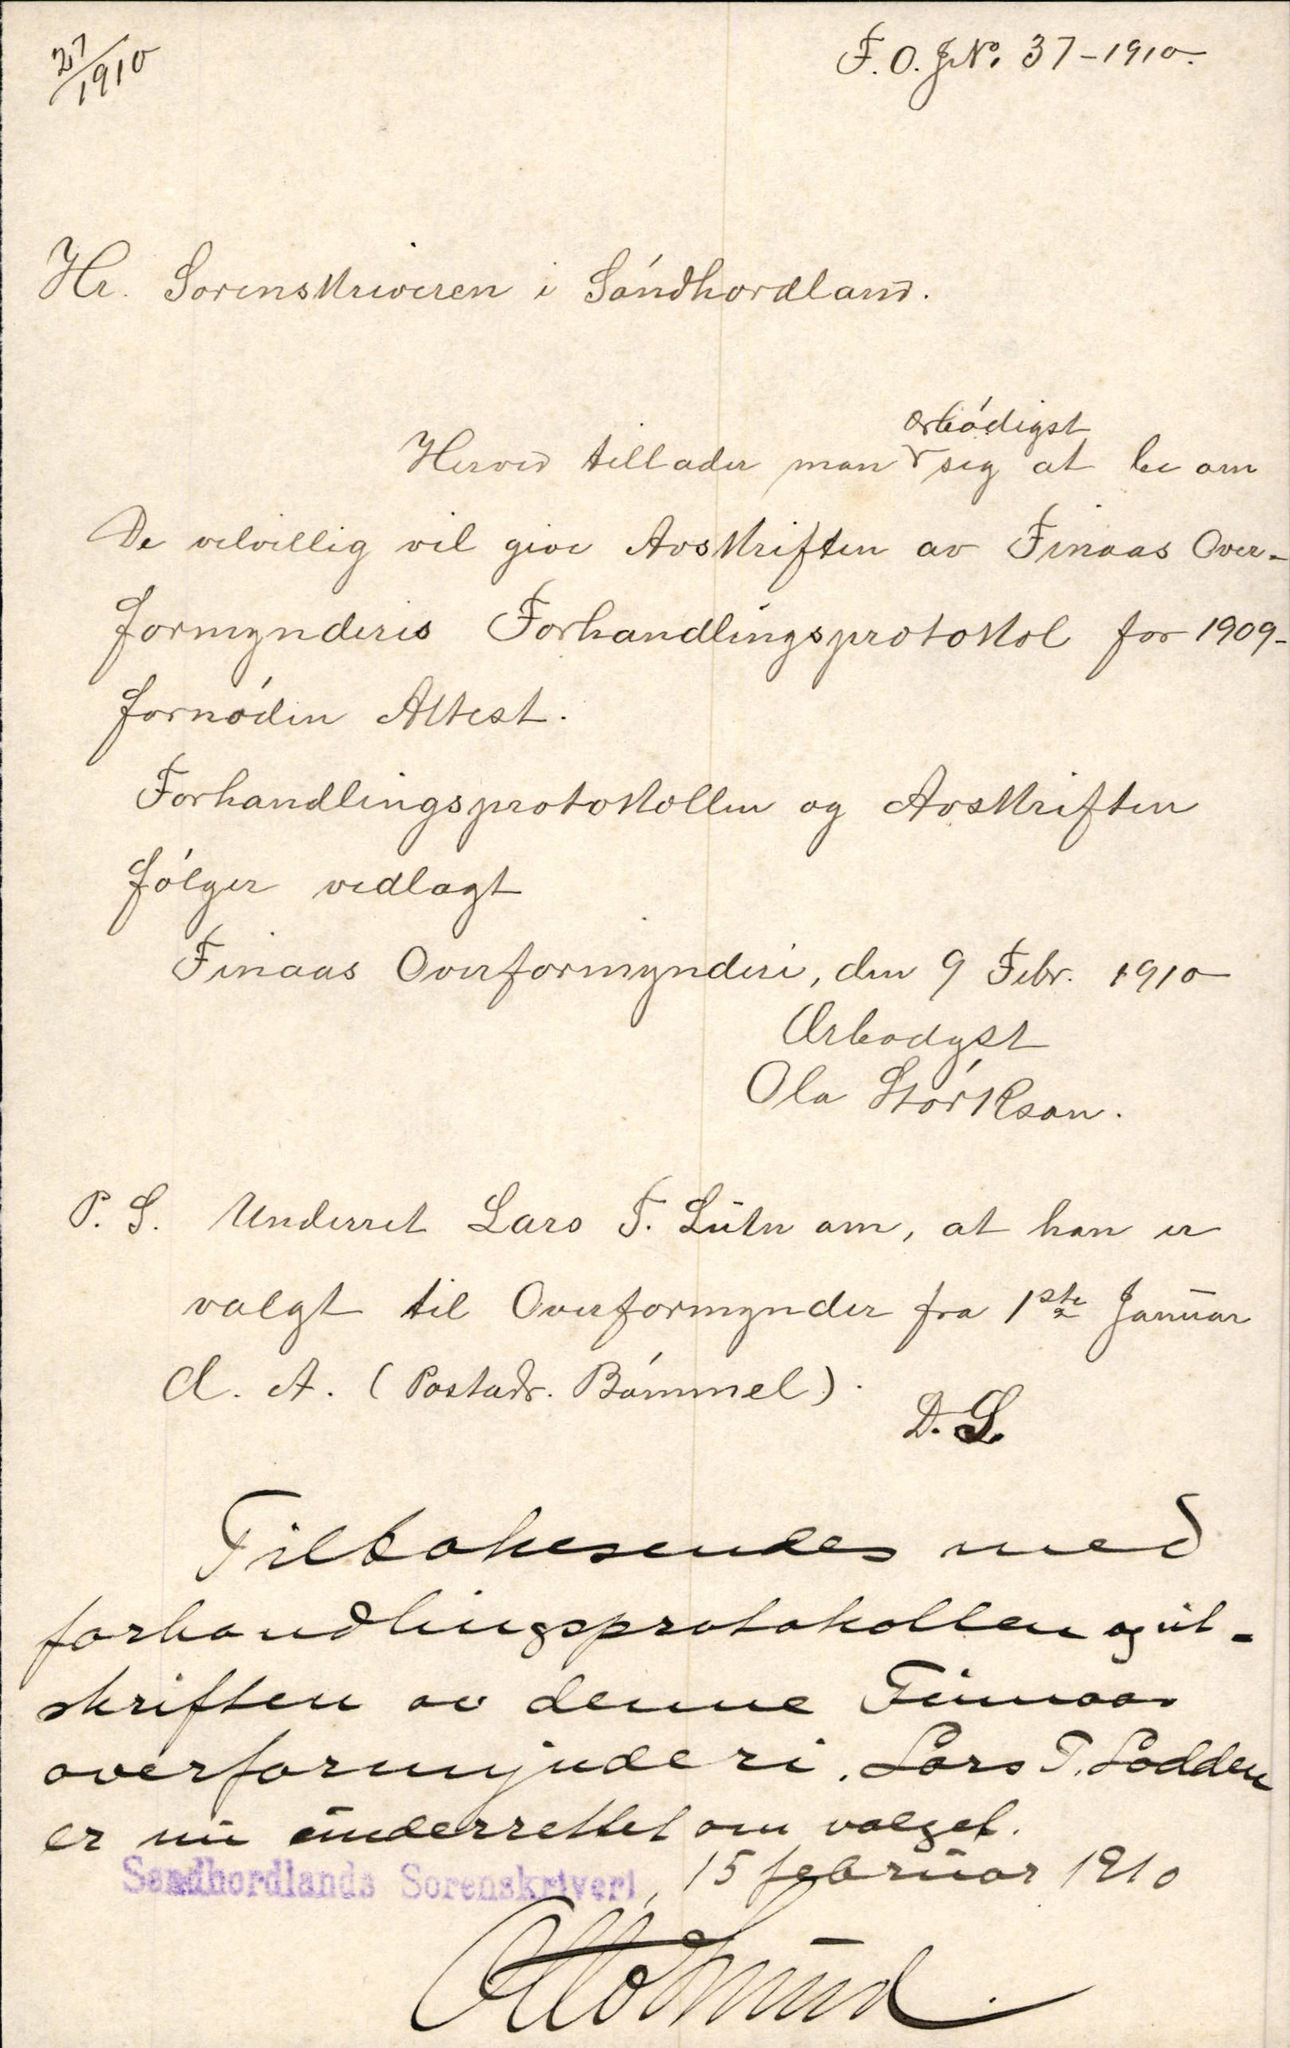 27/1910
F. O. J№. 37-1910.
Hr. Sorenskriveren i Söndhordland.
ærbödigst
Herved tillader man sig at be om
De velvillig vil give Avskriften av Finaas Over-
formynderis Forhandlingsprotokol for 1909-
fornöden Attest.
Forhandlingsprotokollen og Avskriften
fölger vedlagt
Finaas Overformynderi, den 9 Febr. 1910
Ærbodygst
Ola Störkson.
P. S. Underret Lars T. om, at han er
valgt til Overformynder fra 1ste Januar
d. A. (Postadr. Bömmel).
D. S.
Tilbakesendes med
forhandlingsprotokollen og ut-
skriften av denne Finnaas
overformynderi. Lars T. Lodden
er nu underrettet om valget.
Søndhordlands Sorenskriveri, 15 februar 1910